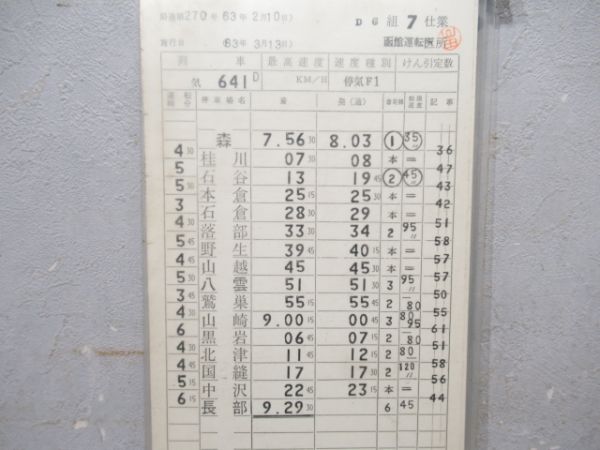 270号 63年 2月10日) DG 組 7 仕業
施行日 63年 3月13日) 函館運転所
列車 最高速度 速度種別 けん引定数
気 641D KM/H 停気F1
運転 時分 停車場名 着 発(通) 着発線 制限速度 記事
森 7.56 30 8.03 1 35
4 30 桂川 07 30 08 本 = 36
5 石谷 13 19 45 2 45 47
5 30 本倉 25 15 25 30 本 = 43
3 石倉 28 30 29 本 = 42
4 30 落部 33 30 34 2 95 51
5 45 野生 39 45 40 15 本 = 58
4 45 山越 45 45 30 本 = 57
5 30 八雲 51 51 30 3 95 57
3 45 鷲巣 55 15 55 45 2 80 50
4 30 山崎 9.00 15 00 45 3 80 95 55
6 黒岩 06 45 07 15 2 80 61
4 30 北豊津 11 45 12 15 2 80 51
5 国縫 17 17 30 2 120 58
5 15 中沢 22 45 23 15 本 = 56
6 15 長万部 9.29 30 6 45 44